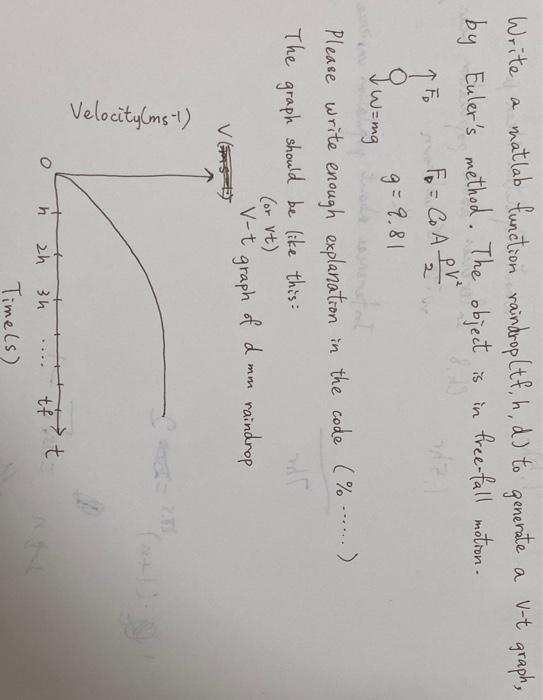 Write a matlab function raindrop(tf, h, d) to generate a V-t graph,
by Euler's method. The object is in free-fall motion.
↑ F_D F_D = C_D A ρV²/2
↓ W=mg g = 9.81
Please write enough explanation in the code (% ......)
The graph should be like this:
(or vt)
V-t graph of d mm raindrop
V
Velocity(ms-1)
O h 2h 3h .... tf t
Time(s)